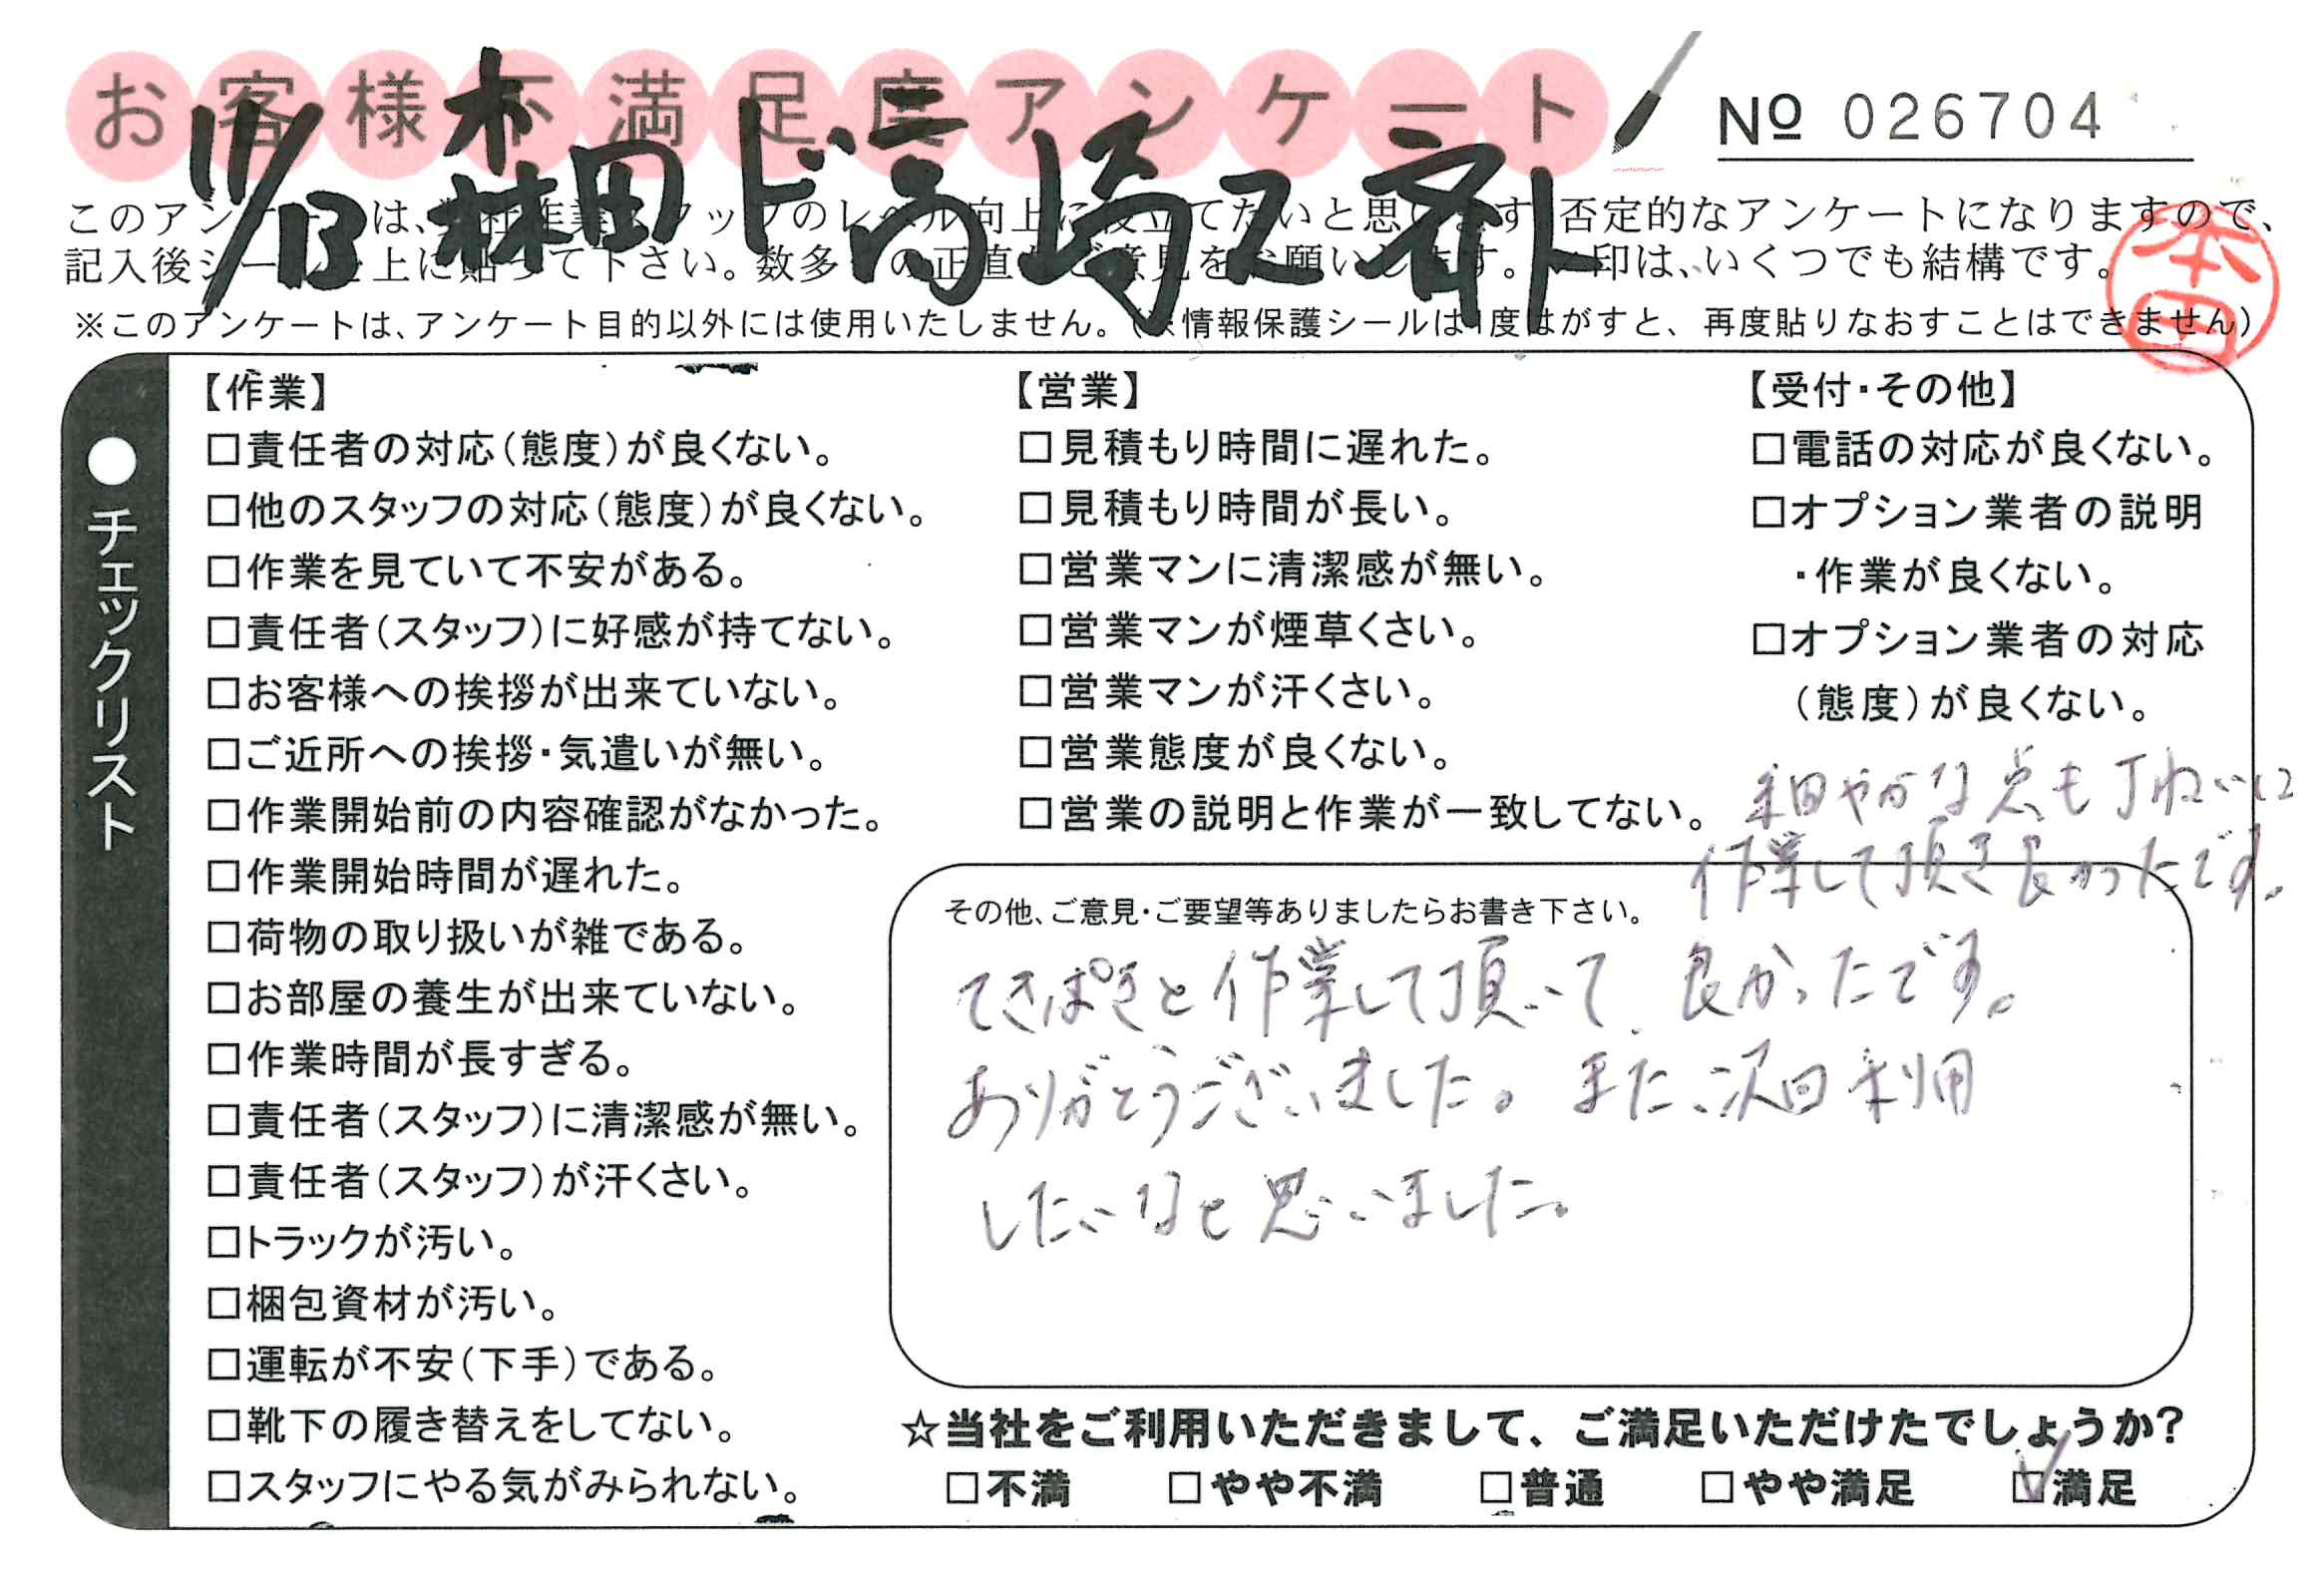 お客様不満足度アンケート
No 026704
11/13 森田 ド高崎 ス齊ト
このアンケートは、弊社作業スタッフのレベル向上に役立てたいと思います。否定的なアンケートになりますので、
記入後シールを上に貼って下さい。数多くの正直なご意見をお願いします。 印は、いくつでも結構です。
※このアンケートは、アンケート目的以外には使用いたしません。(※情報保護シールは1度はがすと、再度貼りなおすことはできません)
本田
●チェックリスト
【作業】
□責任者の対応(態度)が良くない。
□他のスタッフの対応(態度)が良くない。
□作業を見ていて不安がある。
□責任者(スタッフ)に好感が持てない。
□お客様への挨拶が出来ていない。
□ご近所への挨拶・気遣いが無い。
□作業開始前の内容確認がなかった。
□作業開始時間が遅れた。
□荷物の取り扱いが雑である。
□お部屋の養生が出来ていない。
□作業時間が長すぎる。
□責任者(スタッフ)に清潔感が無い。
□責任者(スタッフ)が汗くさい。
□トラックが汚い。
□梱包資材が汚い。
□運転が不安(下手)である。
□靴下の履き替えをしてない。
□スタッフにやる気がみられない。
【営業】
□見積もり時間に遅れた。
□見積もり時間が長い。
□営業マンに清潔感が無い。
□営業マンが煙草くさい。
□営業マンが汗くさい。
□営業態度が良くない。
□営業の説明と作業が一致してない。
【受付・その他】
□電話の対応が良くない。
□オプション業者の説明
・作業が良くない。
□オプション業者の対応
(態度)が良くない。
細やかな点も丁ねいに
作業して頂き良かったです。
その他、ご意見・ご要望等ありましたらお書き下さい。
てきぱきと作業して頂いて、良かったです。
ありがとうございました。また、次回利用
したいなと思いました。
☆当社をご利用いただきまして、ご満足いただけたでしょうか?
□不満 □やや不満 □普通 □やや満足 ☑満足